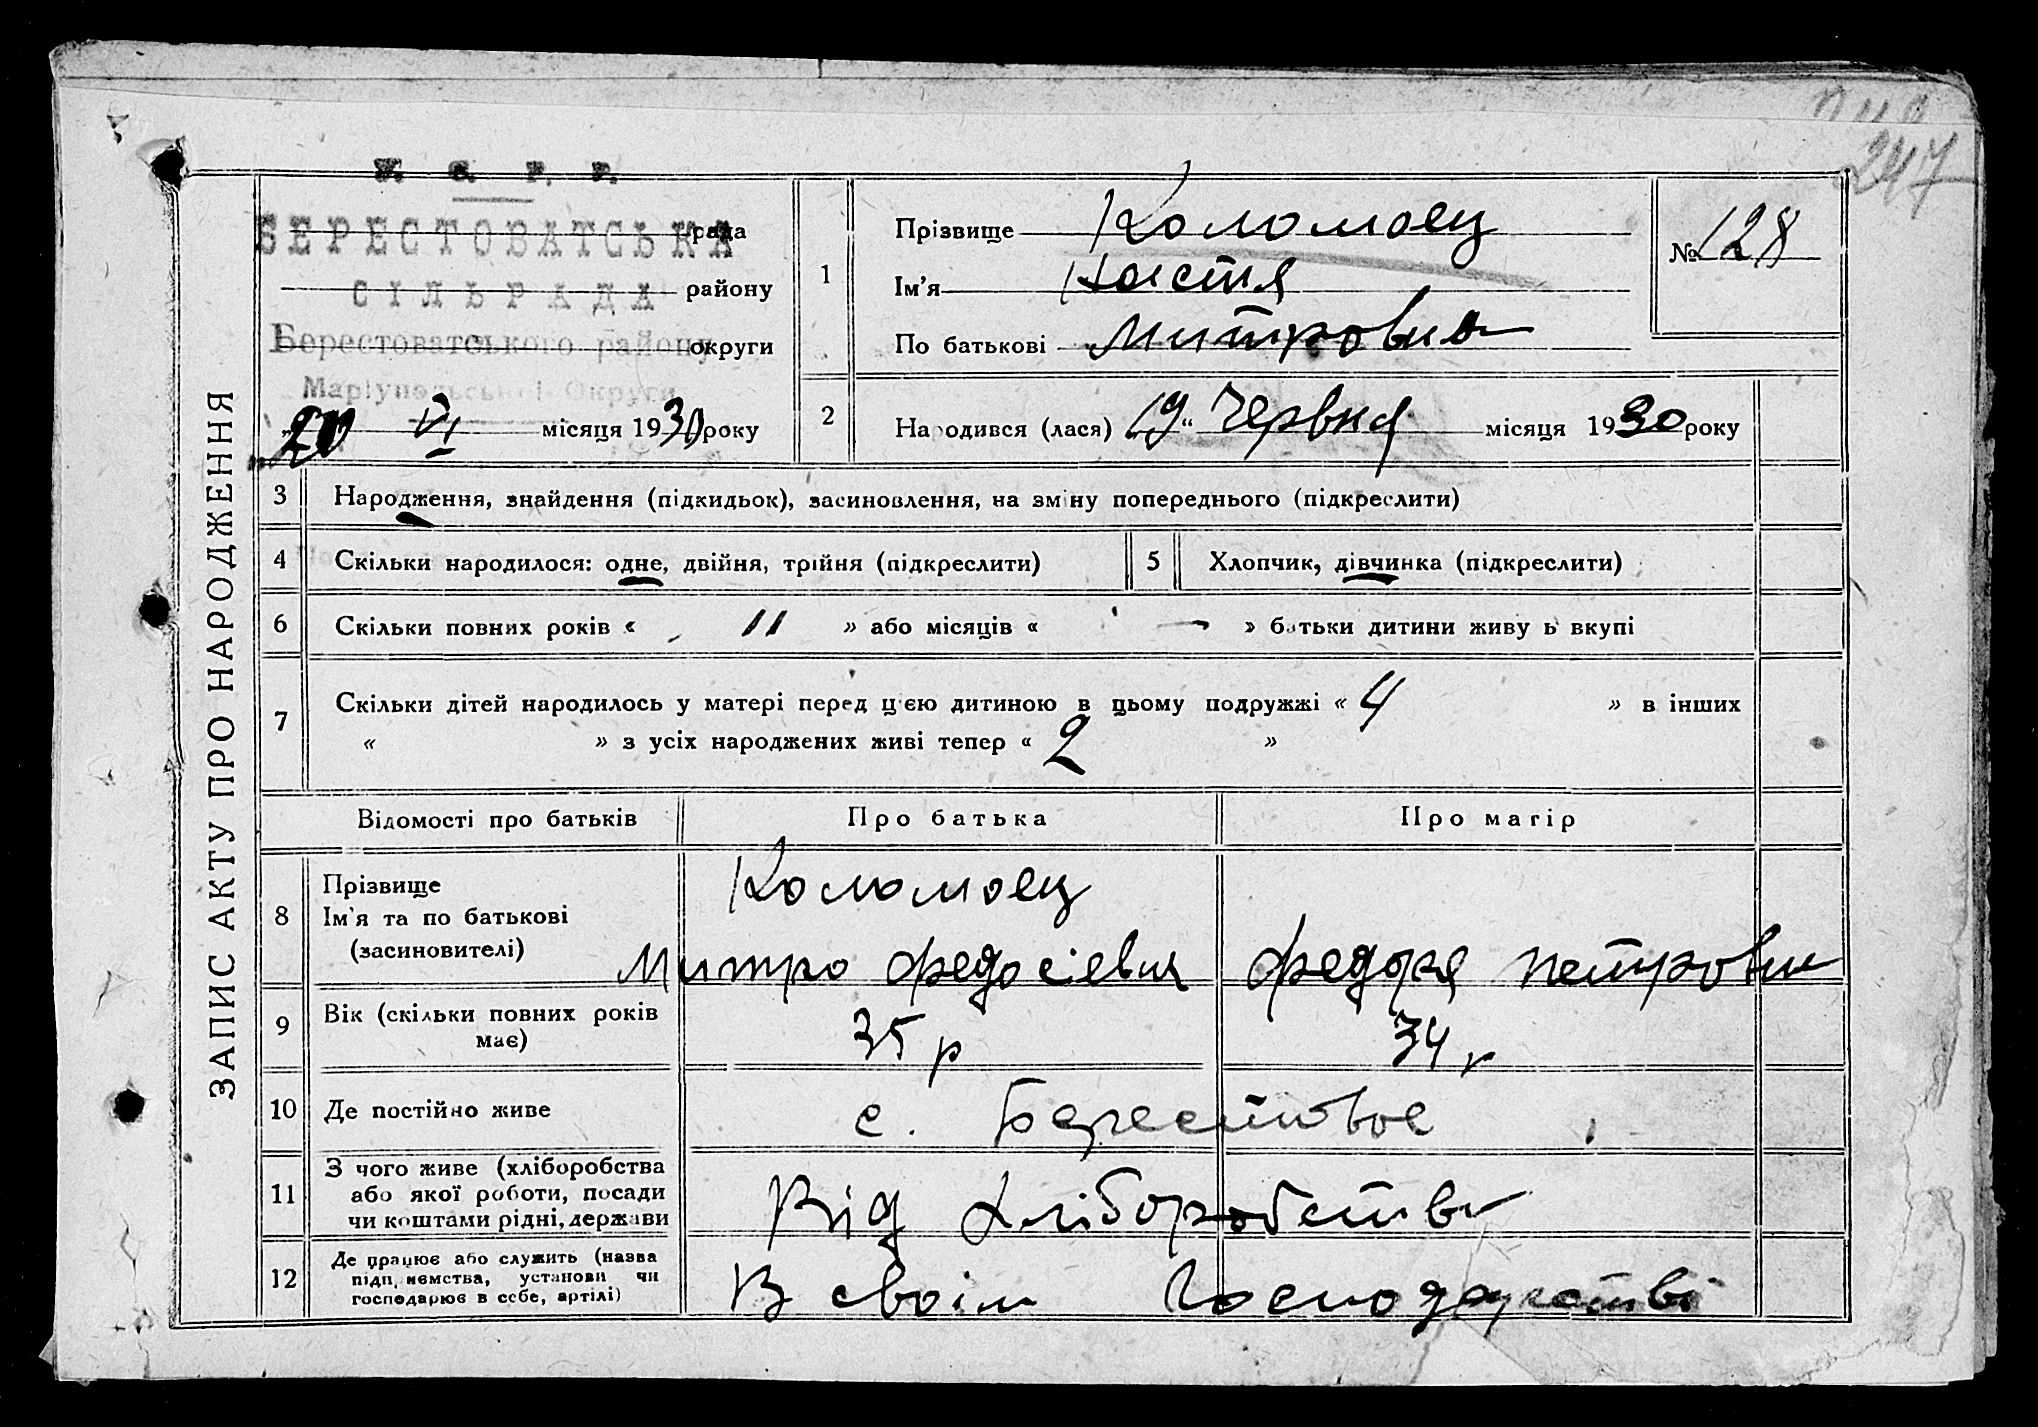 247
У. С. Р. Р.
БЕРЕСТОВАТСЬКА рада
СІЛЬРАДА району
Берестоватського району округи
Маріупольської Округи
20 VI місяця 1930 року
ЗАПИС АКТУ ПРО НАРОДЖЕННЯ
1 Прізвище Коломоец
Ім'я Настя
По батькові Митровна
№ 128
2 Народився (лася) 19 " Червня місяця 1930 року
3 Народження, знайдення (підкидьок), засиновлення, на зміну попереднього (підкреслити)
4 Скільки народилося: одне, двійня, трійня (підкреслити) 5 Хлопчик, дівчинка (підкреслити)
6 Скільки повних років « 11 » або місяців « — » батьки дитини живуть вкупі
7 Скільки дітей народилось у матері перед цією дитиною в цьому подружжі « 4 » в інших
« » з усіх народжених живі тепер « 2 »
Відомості про батьків Про батька Про матір
8 Прізвище Коломоец
Ім'я та по батькові
(засиновителі) Митро Федосієвич Федора Петровн
9 Вік (скільки повних років має) 35 р 34 р
10 Де постійно живе с. Берестовое
11 З чого живе (хліборобства
або якої роботи, посади
чи коштами рідні, держави Від Хліборобства
12 Де працює або служить (назва
підприємства, установи чи
господарює в себе, артілі) В своїм Господарстві